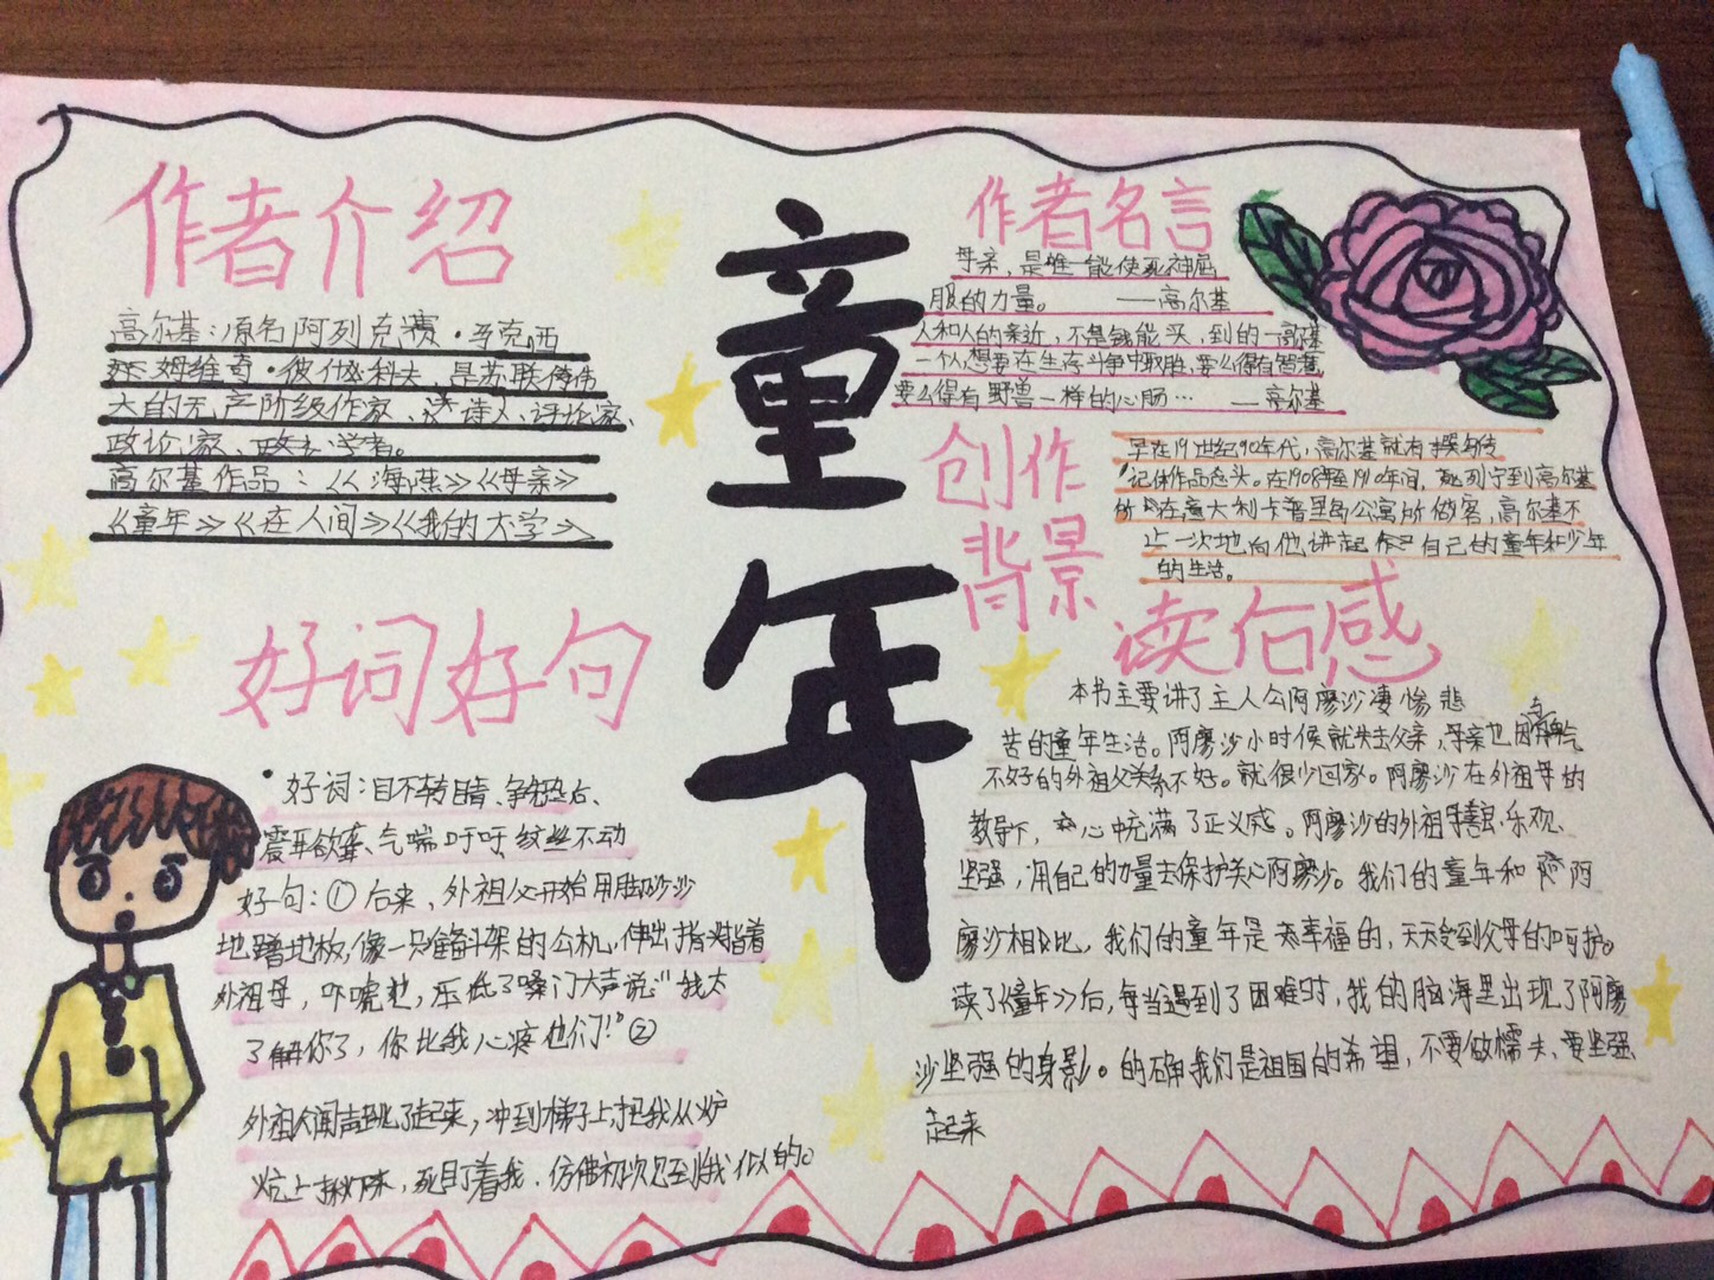 作者介绍
高尔基：原名阿列克赛·马克西
姆维奇·彼什科夫，是苏联伟
大的无产阶级作家、诗人、评论家、
政论家、学者。
高尔基作品：《海燕》《母亲》
《童年》《在人间》《我的大学》
好词好句
好词：目不转睛、争先恐后、
震耳欲聋、气喘吁吁、纹丝不动
好句：①后来，外祖父开始用脚沙沙
地蹭地板，像一只准备斗架的公机，伸出指头指着
外祖母，吓唬她，压低了嗓门大声说“我太
了解你了，你比我心疼他们！”②
外祖父闻声跳了起来，冲到梯子上，把我从炉
炕上揪下来，死盯着我，仿佛初次见到我似的。
童年
作者名言
母亲，是唯一能使死神屈
服的力量。 ——高尔基
人和人的亲近，不是钱能买到的—高尔基
一个人想要在生存斗争中取胜，要么得有智慧，
要么得有野兽一样的心肠… —高尔基
创作
背景
早在19世纪90年代，高尔基就有撰写传
记体作品念头。在1908年至1910年间，列宁到高尔基
在意大利卡普里岛公寓所做客，高尔基不
止一次地向他讲起自己的童年和少年
的生活。
读后感
本书主要讲了主人公阿廖沙凄惨悲
苦的童年生活。阿廖沙小时候就失去父亲，母亲也因脾气
不好的外祖父关系不好。就很少回家。阿廖沙在外祖母的
教导下，心中充满了正义感。阿廖沙的外祖母善良、乐观、
坚强，用自己的力量去保护关心阿廖沙。我们的童年和阿
廖沙相比，我们的童年是幸福的，天天受到父母的呵护。
读了《童年》后，每当遇到了困难时，我的脑海里出现了阿廖
沙坚强的身影。的确我们是祖国的希望，不要做懦夫、要坚强
起来